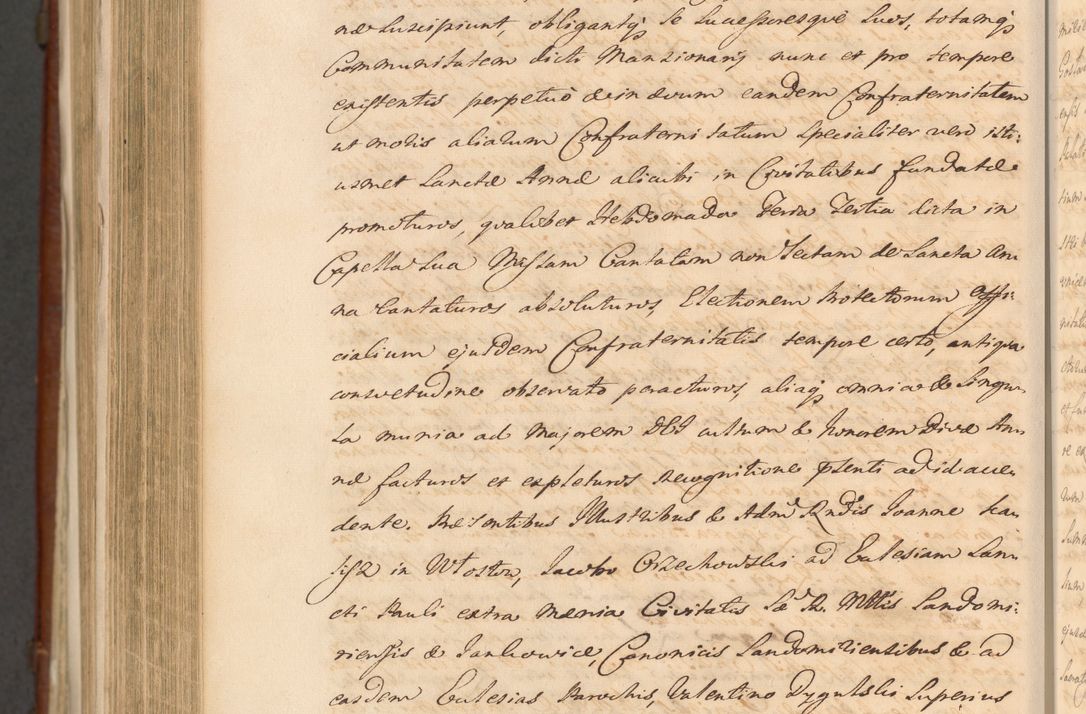 næ suscipiunt, obligantq́ se Sucessoresque Suos, totamq́
Communitatem dicti Manzionarÿ nunc et pro tempore
existentis perpetuò & in ævum eandem Confraternitatem
ut moris aliarum Confraternitatum specialiter vero isti:
usmet Sanctæ Annæ alicubi in Civitatibus fundatæ
promoturos, qualibet Hebdomada Feria Tertia dicta in
Capella sua Missam Cantatam non lectam de Sancta An:
na Cantaturos absoluturos, Electionem Protectorum Offi:
cialium ejusdem Confraternitatis tempore certo, antiqua
consvetudine observato peracturos, aliaq́ omnia & Singu:
la munia ad Majorem DEI cultum & honorem Divæ An:
næ facturos et expleturos recognitione pſenti ad id acce:
dente. Præsentibus Illustribus & Adm̃ Rndis Joanne
in Wtostow, Jacobo Orzechowski ad Eclesiam San:
cti Pauli extra mænia Civitatis Sæ R. Mttis Sandomi:
riensis & Jankowice, Canonicis Sandomiriensibus & ad
easdem Eclesias Parochis, Valentino Dygulski Superius